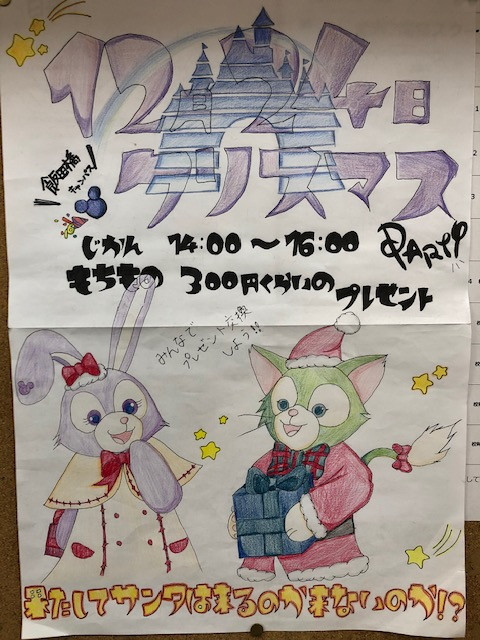 12月24日
クリスマス
飯田橋
キャンパス
PARTY
じかん 14:00〜16:00
もちもの 300円くらいの
プレゼント
みんなで
プレゼント交換
しよう!!
果たしてサンタは来るのか来ないのか!?